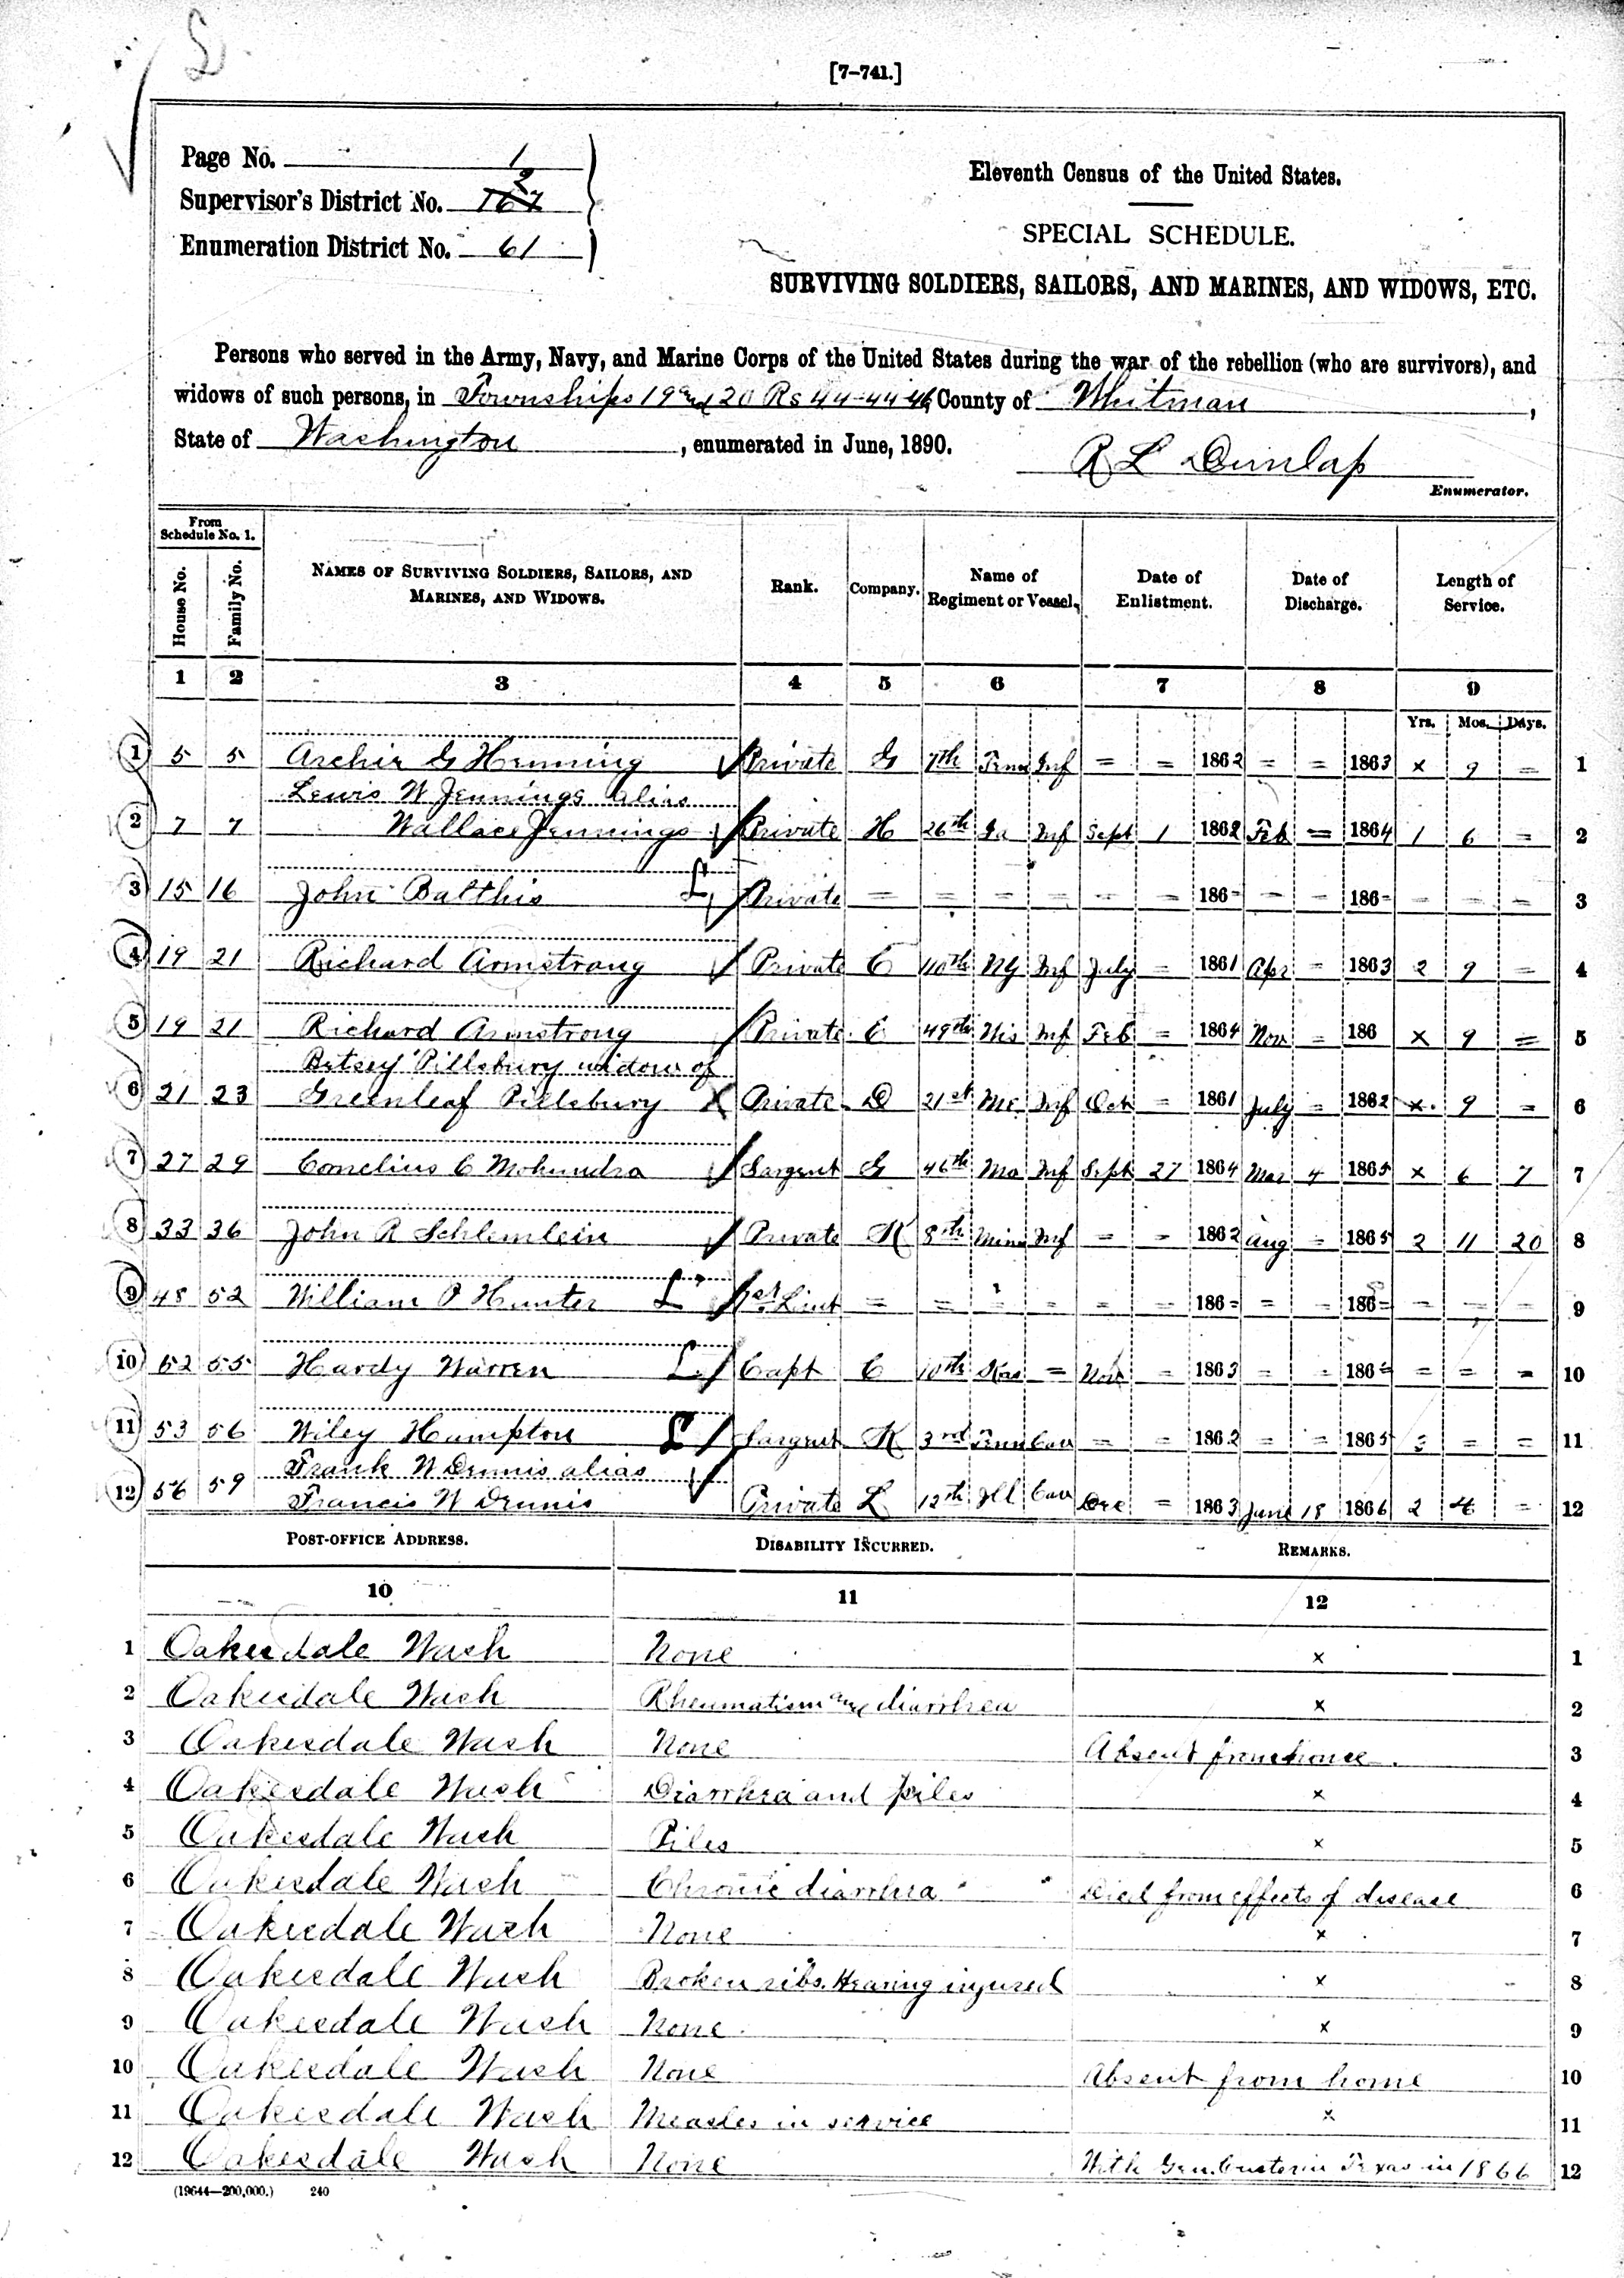 [7-741.]
Page No. 1
Supervisor's District No. 167 2
Enumeration District No. 61
Eleventh Census of the United States.
SPECIAL SCHEDULE.
SURVIVING SOLDIERS, SAILORS, AND MARINES, AND WIDOWS, ETC.
Persons who served in the Army, Navy, and Marine Corps of the United States during the war of the rebellion (who are survivors), and
widows of such persons, in Townships 19 and 20 Rs 44-44-46, County of Whitman,
State of Washington, enumerated in June, 1890.
R L Dunlap
Enumerator.
From Schedule No. 1.
House No. Family No. NAMES OF SURVIVING SOLDIERS, SAILORS, AND MARINES, AND WIDOWS. Rank. Company. Name of Regiment or Vessel. Date of Enlistment. Date of Discharge. Length of Service.
1 2 3 4 5 6 7 8 9
Yrs. Mos. Days.
1 5 5 Archie G Henning Private G 7th Tenn Inf = = 1862 = = 1863 x 9 = 1
Lewis W Jennings alias
2 7 7 Wallace Jennings Private H 26th Ia Inf Sept 1 1862 Feb = 1864 1 6 = 2
3 15 16 John Balthis L Private = = = = = = 186= = = 186= = = = 3
4 19 21 Richard Armstrong Private C 40th NY Inf July = 1861 Apr = 1863 2 9 = 4
5 19 21 Richard Armstrong Private C 49th Wis Inf Feb = 1864 Nov = 186 x 9 = 5
Betsey Pillsbury widow of
6 21 23 Greenleaf Pillsbury X Private D 21st Me Inf Oct = 1861 July = 1862 x 9 = 6
7 27 29 Cornelius C Mohundra Sargent G 46th Mo Inf Sept 27 1864 Mar 4 1865 x 6 7 7
8 33 36 John R Schlemlein Private K 8th Minn Inf = = 1862 Aug = 1865 2 11 20 8
9 48 52 William P Hunter L 1st Lieut = = = = = = 186= = = 186= = = = 9
10 52 55 Hardy Warren L Capt C 10th Kas = Nov = 1863 = = 186= = = = 10
11 53 56 Wiley Humpton L Sargent K 3rd Tenn Cav = = 1862 = = 1865 3 = = 11
Frank W Dennis alias
12 56 59 Francis W Dennis Private L 12th Ill Cav Dec = 1863 June 18 1866 2 4 = 12
POST-OFFICE ADDRESS. DISABILITY INCURRED. REMARKS.
10 11 12
1 Oakesdale Wash None x 1
2 Oakesdale Wash Rheumatism and diarrhea x 2
3 Oakesdale Wash None Absent from home 3
4 Oakesdale Wash Diarrhea and piles x 4
5 Oakesdale Wash Piles x 5
6 Oakesdale Wash Chronic diarrhea Died from effects of disease 6
7 Oakesdale Wash None x 7
8 Oakesdale Wash Broken ribs. Hearing injured x 8
9 Oakesdale Wash None x 9
10 Oakesdale Wash None Absent from home 10
11 Oakesdale Wash Measles in service x 11
12 Oakesdale Wash None With Gen. Custer in Texas in 1866 12
(19644—200,000.) 240